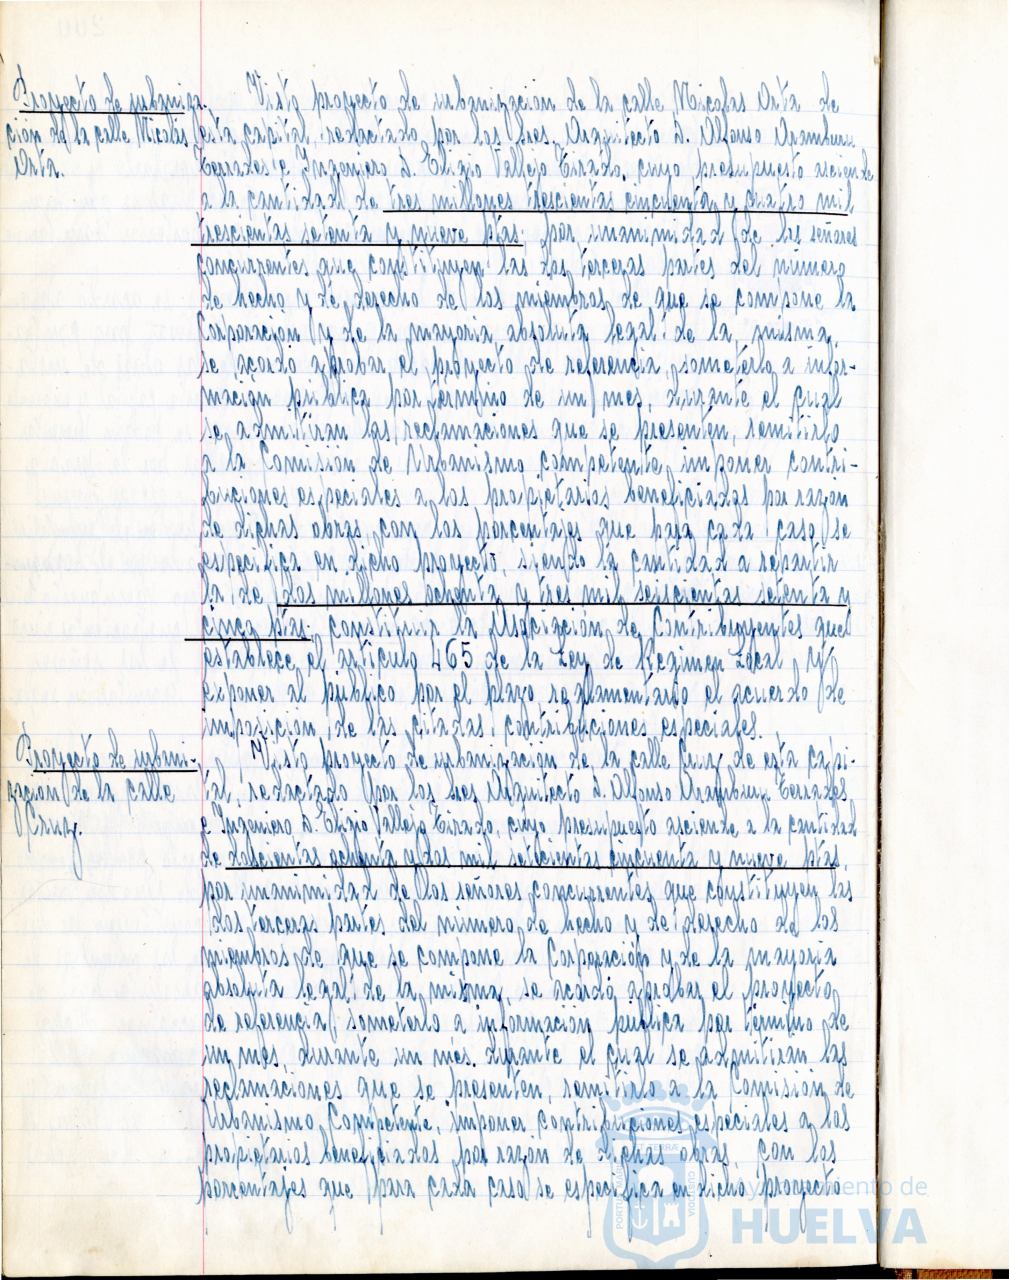 Proyecto de urbaniza-
cion de la calle Nicolás
Orta.
Visto proyecto de urbanizacion de la calle Nicolas Orta de
esta capital, redactado por los Sres. Arquitecto D. Alfonso Aramburu
Terrades e Ingeniero D. Eligio Vallejo Tirado, cuyo presupuesto asciende
a la cantidad de tres millones trescientas cincuenta y cuatro mil
trescientas setenta y nueve ptas, por unanimidad de los señores
concurrentes que constituyen las dos terceras partes del número
de hecho y de derecho de los miembros de que se compone la
Corporacion y de la mayoria absoluta legal de la misma,
se acordó aprobar el proyecto de referencia, someterlo a infor-
mación pública por término de un mes, durante el cual
se admitirán las reclamaciones que se presenten, remitirlo
a la Comisión de Urbanismo competente, imponer contri-
buciones especiales a los propietarios beneficiados por razón
de dichas obras, con los porcentajes que para cada caso se
especifica en dicho proyecto, siendo la cantidad a repartir
la de dos millones ochenta y tres mil seiscientas setenta y
cinco ptas. constituir la Asociación de Contribuyentes que
establece el artículo 465 de la Ley de Regimen Local y
exponer al público por el plazo reglamentario el acuerdo de
imposicion de las citadas contribuciones especiales.
Proyecto de urbani-
zacion de la calle
Cruz.
Visto proyecto de urbanizacion de la calle Cruz de esta capi-
tal, redactado por los Sres Arquitecto D. Alfonso Aramburu Terrades
e Ingeniero D. Eligio Vallejo Tirado, cuyo presupuesto asciende a la cantidad
de doscientas ochenta y dos mil setecientas cincuenta y nueve ptas,
por unanimidad de los señores concurrentes que constituyen las
dos terceras partes del número de hecho y de derecho de los
miembros de que se compone la Corporación y de la mayoria
absoluta legal de la misma, se acordó aprobar el proyecto
de referencia, someterlo a información pública por termino de
un mes durante un mes. durante el cual se admitiran las
reclamaciones que se presenten, remitirlo a la Comisión de
Urbanismo Competente, imponer contribuciones especiales a los
propietarios beneficiados por razon de dichas obras, con los
porcentajes que para cada caso se especifica en dicho proyecto
Ayuntamiento de
HUELVA